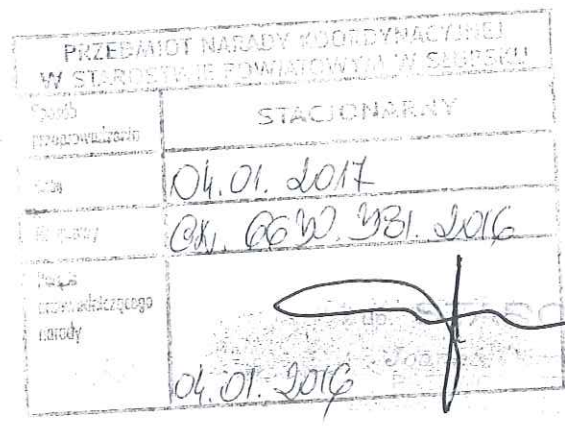 PRZEDMIOT NARADY KOORDYNACYJNEJ
W STAROSTWIE POWIATOWYM W SŁUPSKU
Sposób
przeprowadzenia
STACJONARNY
04.01.2017
6630. 2016
Podpis
przewodniczącego
narady
04.01.2016